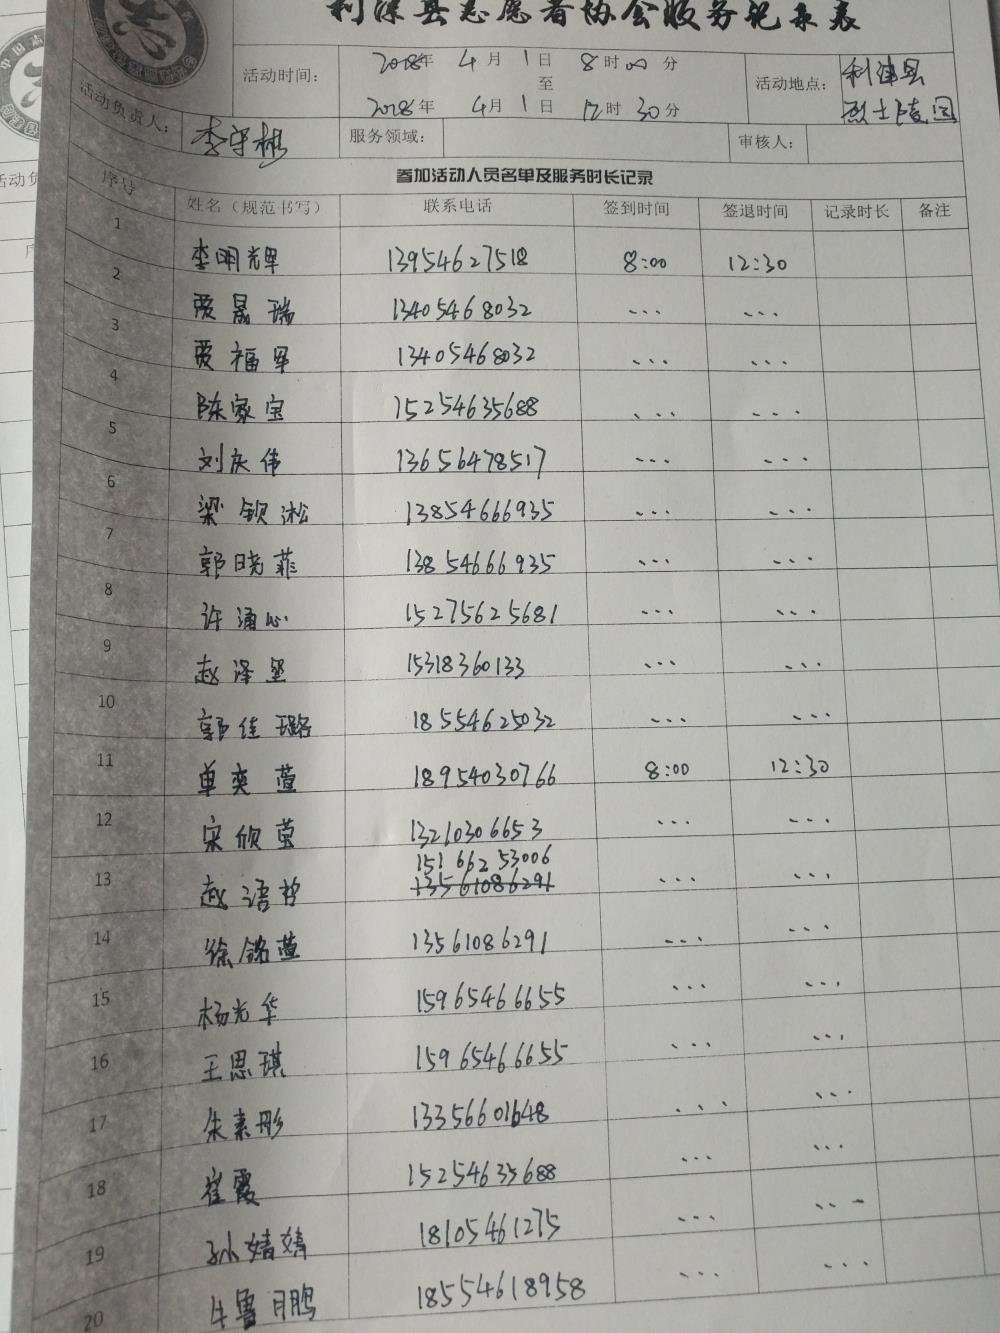 利津县志愿者协会服务记录表
活动时间： 2018年 4月 1日 8时00分
至
2018年 4月 1日 12时30分
活动地点： 利津县
烈士陵园
活动负责人： 李守彬 服务领域： 审核人：
参加活动人员名单及服务时长记录
序号 姓名（规范书写） 联系电话 签到时间 签退时间 记录时长 备注
1 李明辉 13954627518 8:00 12:30
2 贾晟瑞 13405468032 ... ...
3 贾福军 13405468032 ... ...
4 陈家宝 15254635688 ... ...
5 刘庆伟 13656478517 ... ...
6 梁钦淞 13854666935 ... ...
7 郭晓菲 13854666935 ... ...
8 许涌心 15275625681 ... ...
9 赵泽坚 15318360133 ... ...
10 郭佳璐 18554625032 ... ...
11 单奕萱 18954030766 8:00 12:30
12 宋欣莹 13210306653 ... ...
15166253006
13 赵语哲 13561086291 ... ...
14 徐铭萱 13561086291 ... ...
15 杨光华 15965466655 ... ...
16 王思琪 15965466655 ... ...
17 朱素彤 13356601648 ... ...
18 崔霞 15254635688 ... ...
19 孙婧婧 18105461275 ... ...
20 牛鲁月鹏 18554618958 ... ...